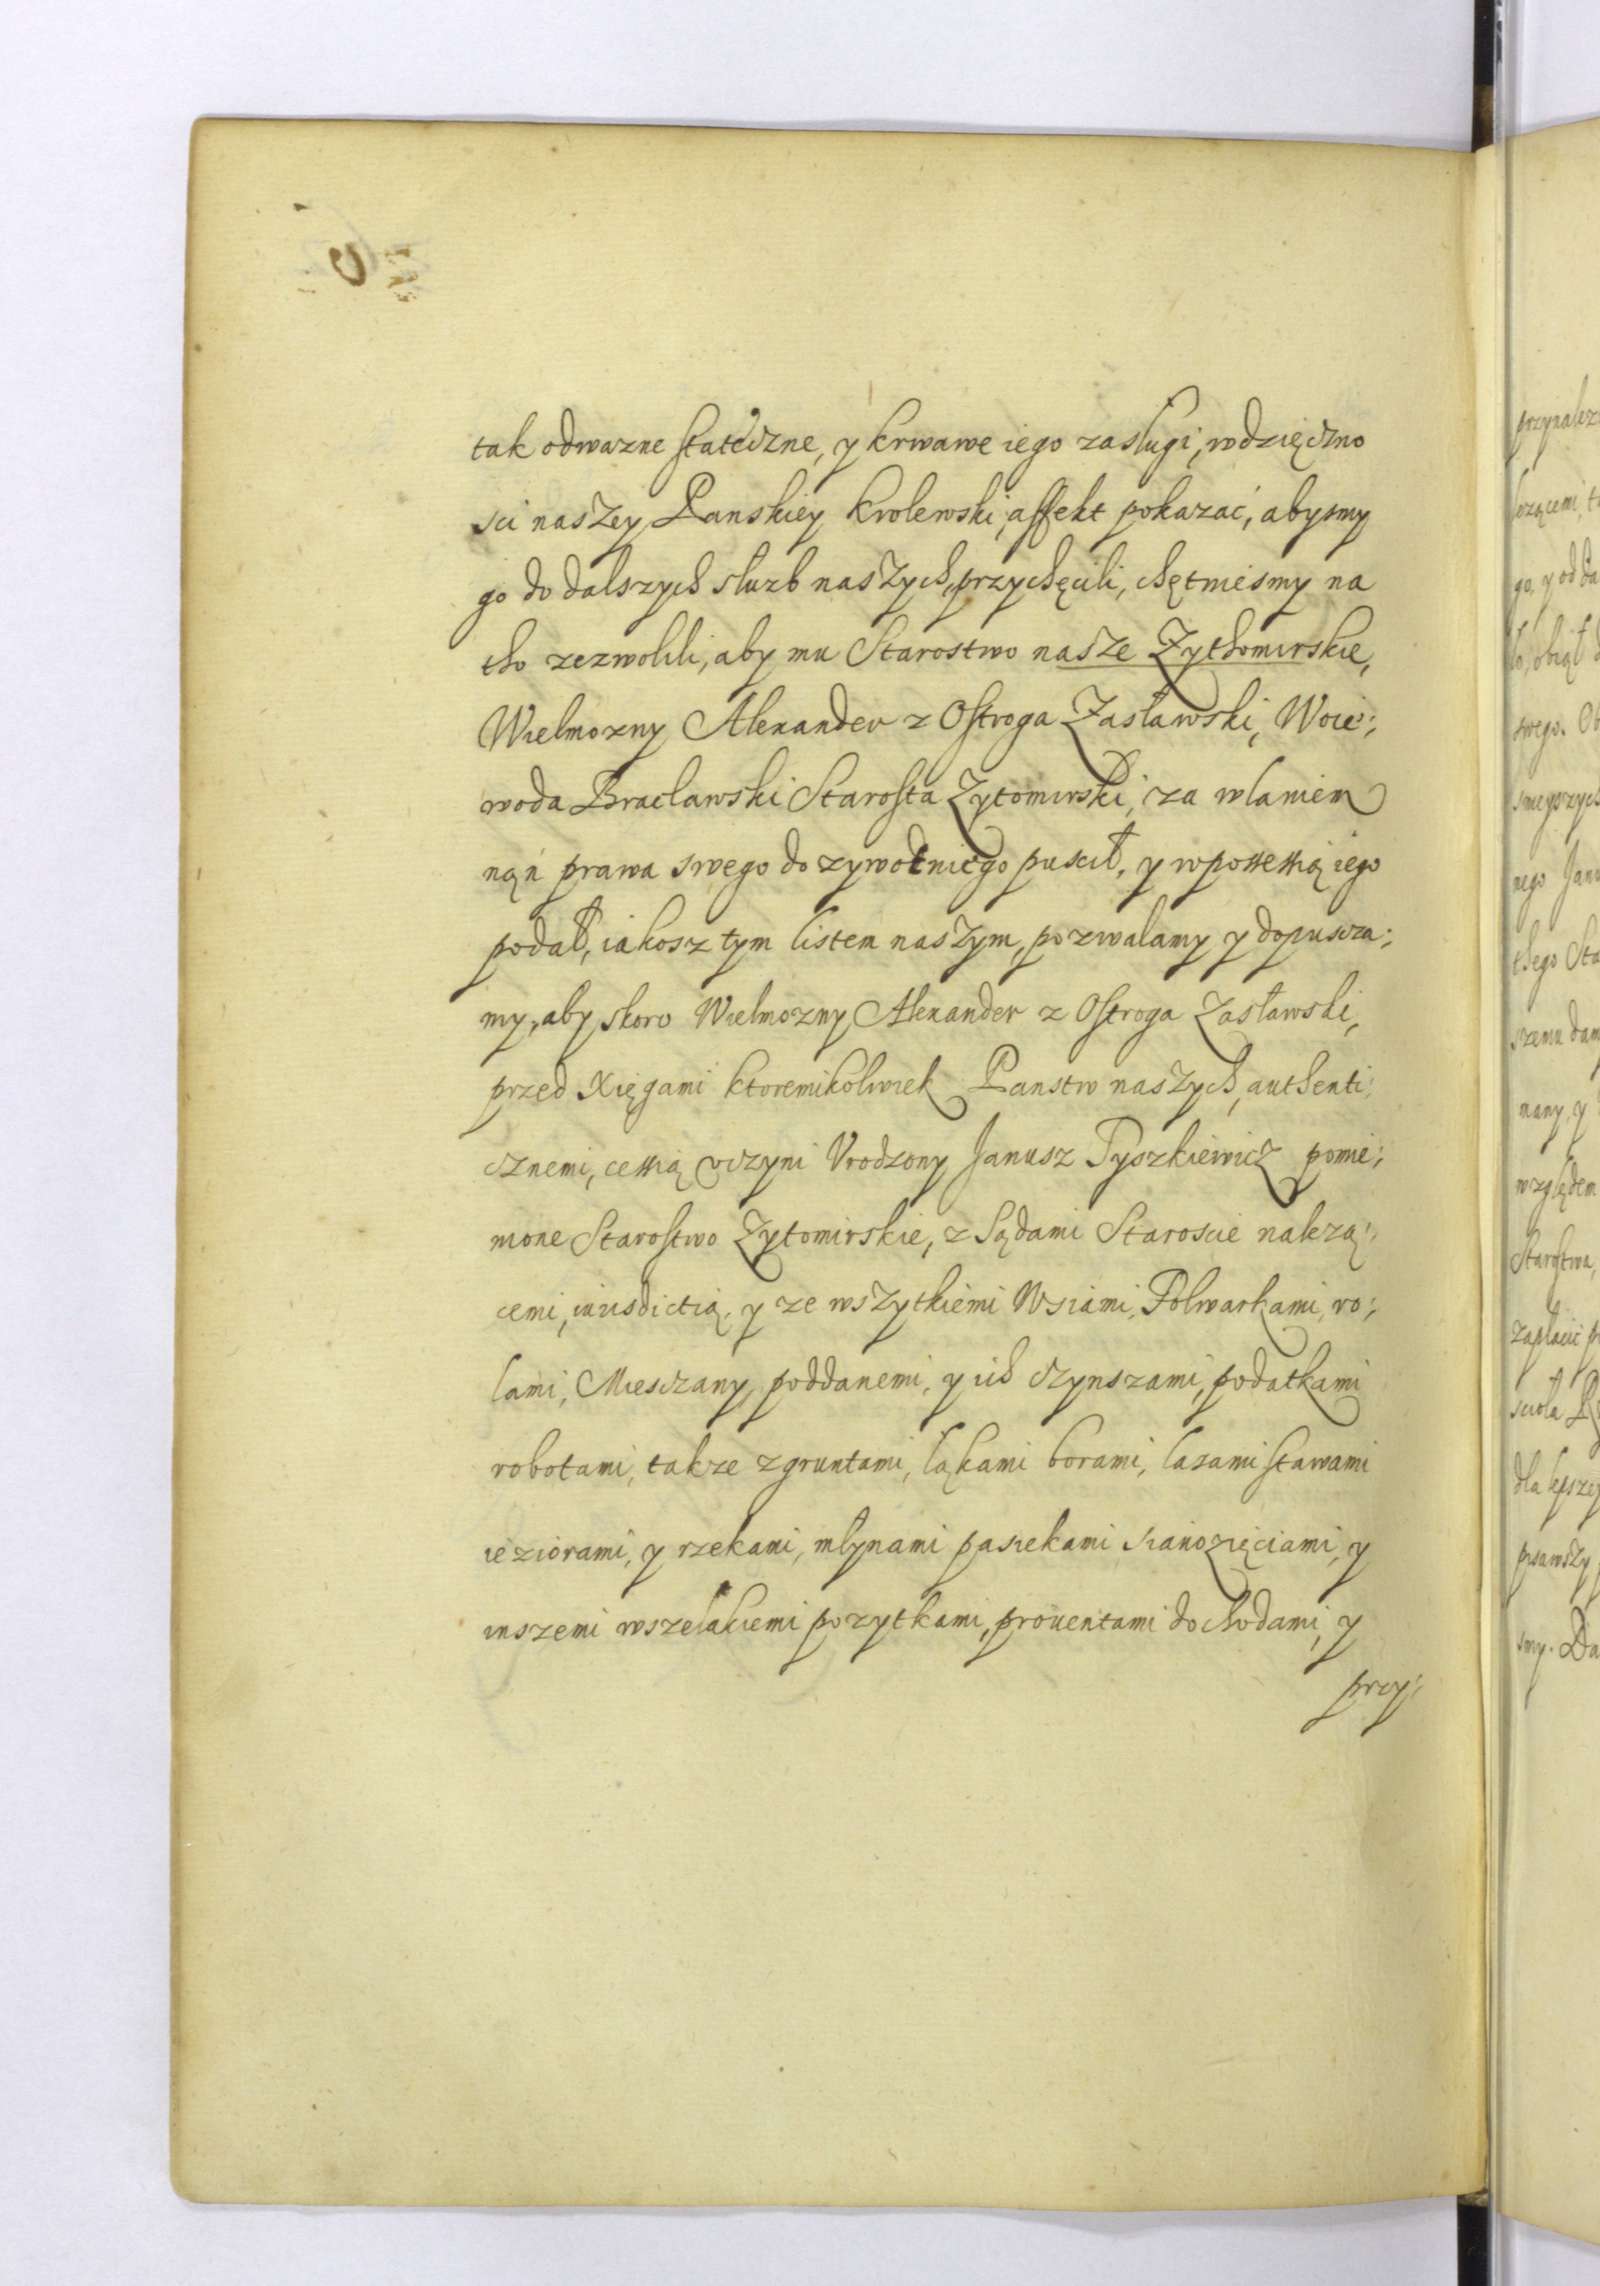 tak odwazne stateczne, y krwawe iego zasługi, wdzięczno
sci naszey Panskiey krolewski, affekt pokazać, abysmy
go do dalszych sluzb naszych, przychęcili, chętniesmy na
tho zezwolili, aby mu Starostwo nasze Zythomirskie,
Wielmozny Alexander z Ostroga Zasławski, Woie:
woda Bracławski Starosta Zytomirski, za wlaniem
nąń prawa swego dozywotniego puscił, y w possessią iego
podał, iakosz tym listem naszym, pozwalamy y dopuscza:
my, aby skoro Wielmozny Alexander z Ostroga Zasławski,
przed Xięgami ktoremikolwiek Panstw naszych, authenti:
cznemi, cessią vczyni Vrodzony Janusz Tyszkiewicz pomie:
nione Starostwo Zytomirskie, z Sądami Staroscie nalezą:
cemi, iurisdictią, y ze wszytkiemi Wsiami, Folwarkami, ro:
lami, Miesczany, poddanemi, y ich czynszami, podatkami
robotami, takze z gruntami, ląkami borami, lasami stawami
ieziorami, y rzekami, młynami pasiekami sianozięciami, y
inszemi wszelakiemi pozytkami, prouentami dochodami, y
przy:
przynalez
lezącemi, t
go, y od da
swego. Ob
nego Janu
thego Sta
szemu dam
względem
Starostwa,
zapłacić p
dla lepszey
smy. Da